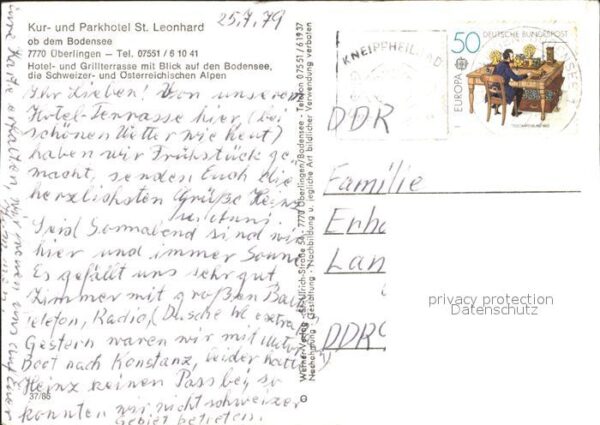 25.7.79
Kur- und Parkhotel St. Leonhard
ob dem Bodensee
7770 Überlingen – Tel. 07551 / 6 10 41
Hotel- und Grillterrasse mit Blick auf den Bodensee,
die Schweizer- und Österreichischen Alpen
Ihr Lieben! Von unserer
Hotel-Terrasse hier, (bei
schönen Wetter wie heut)
haben wir Frühstück ge-
macht, senden Euch die
herzlichsten Grüße Heinz
Seid Sonnabend sind wir
hier und immer Sonne
Es gefällt uns sehr gut
Zimmer mit großen
Telefon, Radio, (Dusche WC extra)
Gestern waren wir mit
Boot nach Konstanz, leider hatte
Heinz keinen Pass bei, so
konnten wir nicht schweizer
Gebiet betreten.
37/86
Werner-Verlag · St.-Ulrich-Straße · 7770 Überlingen/Bodensee · Telefon 07551/61937
Nachahmung · Gestaltung · Nachbildung u. jegliche Art bildlicher Verwendung verboten
KNEIPPHEILBAD
50 DEUTSCHE BUNDESPOST
EUROPA
DDR
Familie
Erh
Lan
DDR
privacy protection
Datenschutz